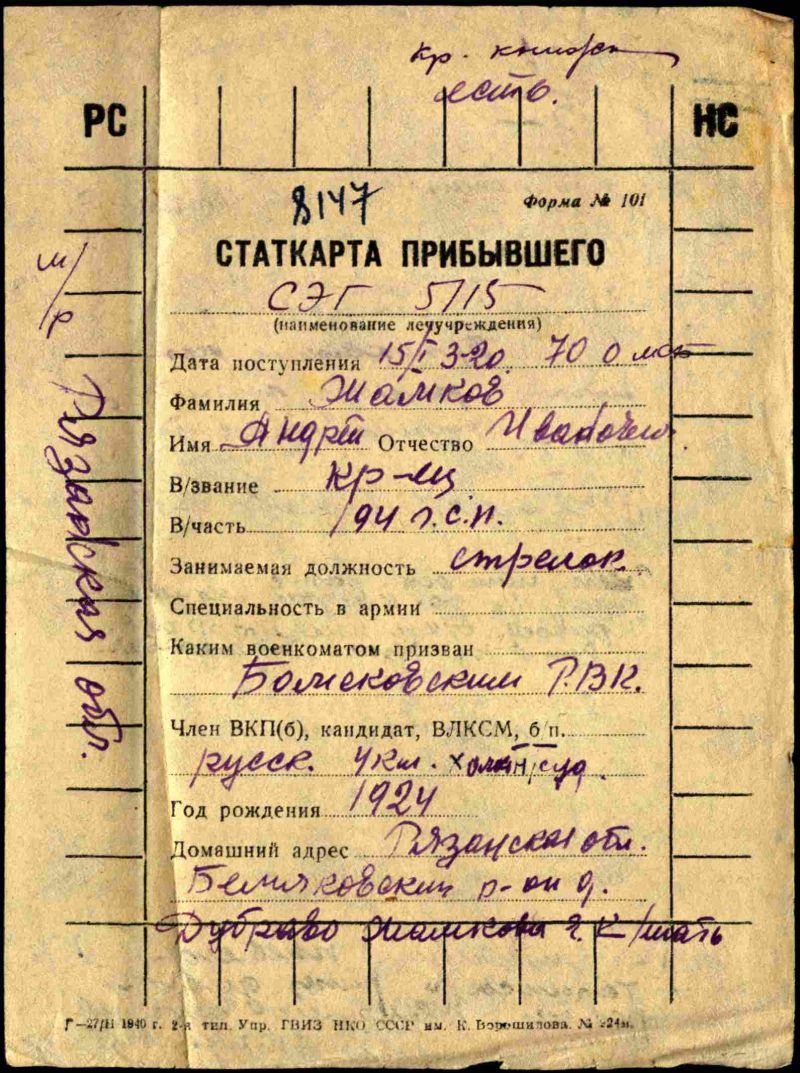 Кр. книжка
есть.
РС
НС
8147
Форма № 101
СТАТКАРТА ПРИБЫВШЕГО
СЭГ 5115
(наименование лечучреждения)
Дата поступления 15/I
Фамилия Жамков
Имя Андрей Отчество Иванович
В/звание кр-ец
В/часть 194 г.с.п.
Занимаемая должность стрелок.
Специальность в армии
Каким военкоматом призван
Р.В.К.
Член ВКП(б), кандидат, ВЛКСМ, б/п.
русск. 4 кл.
Год рождения 1924
Домашний адрес Рязанская обл.
р-он д.
Жамкова /мать
Г—27/II 1940 г. 2-я тип. Упр. ГВИЗ НКО СССР им. К. Ворошилова. №
Рязанская обл.